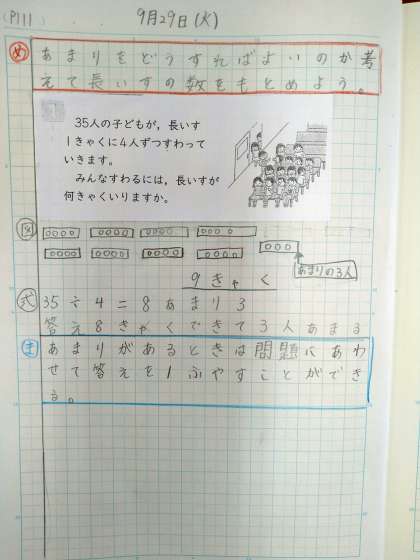 (P111) 9月29日(火)
め あまりをどうすればよいのか考
えて長いすの数をもとめよう。
35人の子どもが，長いす
1きゃくに4人ずつすわって
いきます。
みんなすわるには，長いすが
何きゃくいりますか。
図
あまりの3人
9きゃく
式 35÷4=8あまり3
答え8きゃくできて3人あまる
ま あまりがあるときは問題にあわ
せて答えを1ふやすことができ
る。